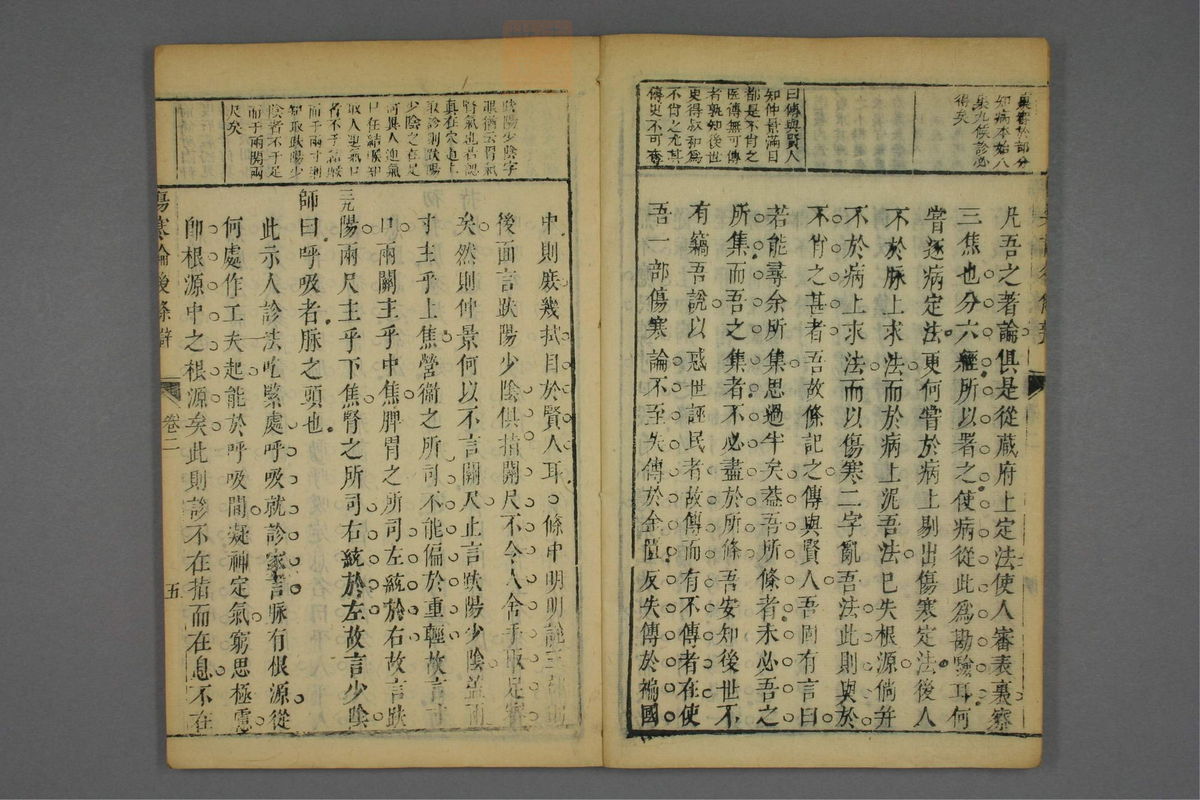 裏審於部分
知病本始八
裏九候診必
得矣
曰傳與賢人
知仲景滿目
都是不肖之
医傳無可傳
者孰知後世
更得叔和為
不肖之尤甚
傳更不可
凡吾之著論俱是從蔵府上定法使人審表裏察
三焦也分六經所以署之使病從此為勘驗耳何
嘗逐病定法更何嘗於病上剔出傷寒定法後人
不於脉上求法而於病上泥吾法已失根源倘并
不於病上求法而以傷寒二字亂吾法此則與於
不肖之甚者吾故條記之傳與賢人吾固有言曰
若能尋余所集思過半矣葢吾所條者未必吾之
所集而吾之集者不必盡於所條吾安知後世不
有竊吾說以惑世誣民者故傳而有不傳者在使
吾一部傷寒論不至失傳於金匱反失傳於褊國
趺陽少陰字
眼猶云胃氣
腎氣也若認
真在穴道上
取診則趺陽
少陰之在足
何異人迎氣
口任結喉却
取人迎氣口
者不于結喉
而于兩寸則
知取趺陽少
陰者不于足
而于兩関兩
尺矣
中則庻幾拭目於賢人耳○條中明明說三部
後面言趺陽少陰俱指關尺不令人舍手取足
矣然則仲景何以不言關尺止言趺陽少陰葢
寸主乎上焦營衞之所司不能偏於重輕故言寸
口兩關主乎中焦脾胃之所司左統於右故言趺
陽兩尺主乎下焦腎之所司右統於左故言少陰
三元
師曰呼吸者脉之頭也
此示人診法吃緊處呼吸就診家言脉有根源從
何處作工夫起能於呼吸間凝神定氣窮思極慮
卽根源中之根源矣此則診不在指而在息不在
傷寒論後條辯
卷二
五